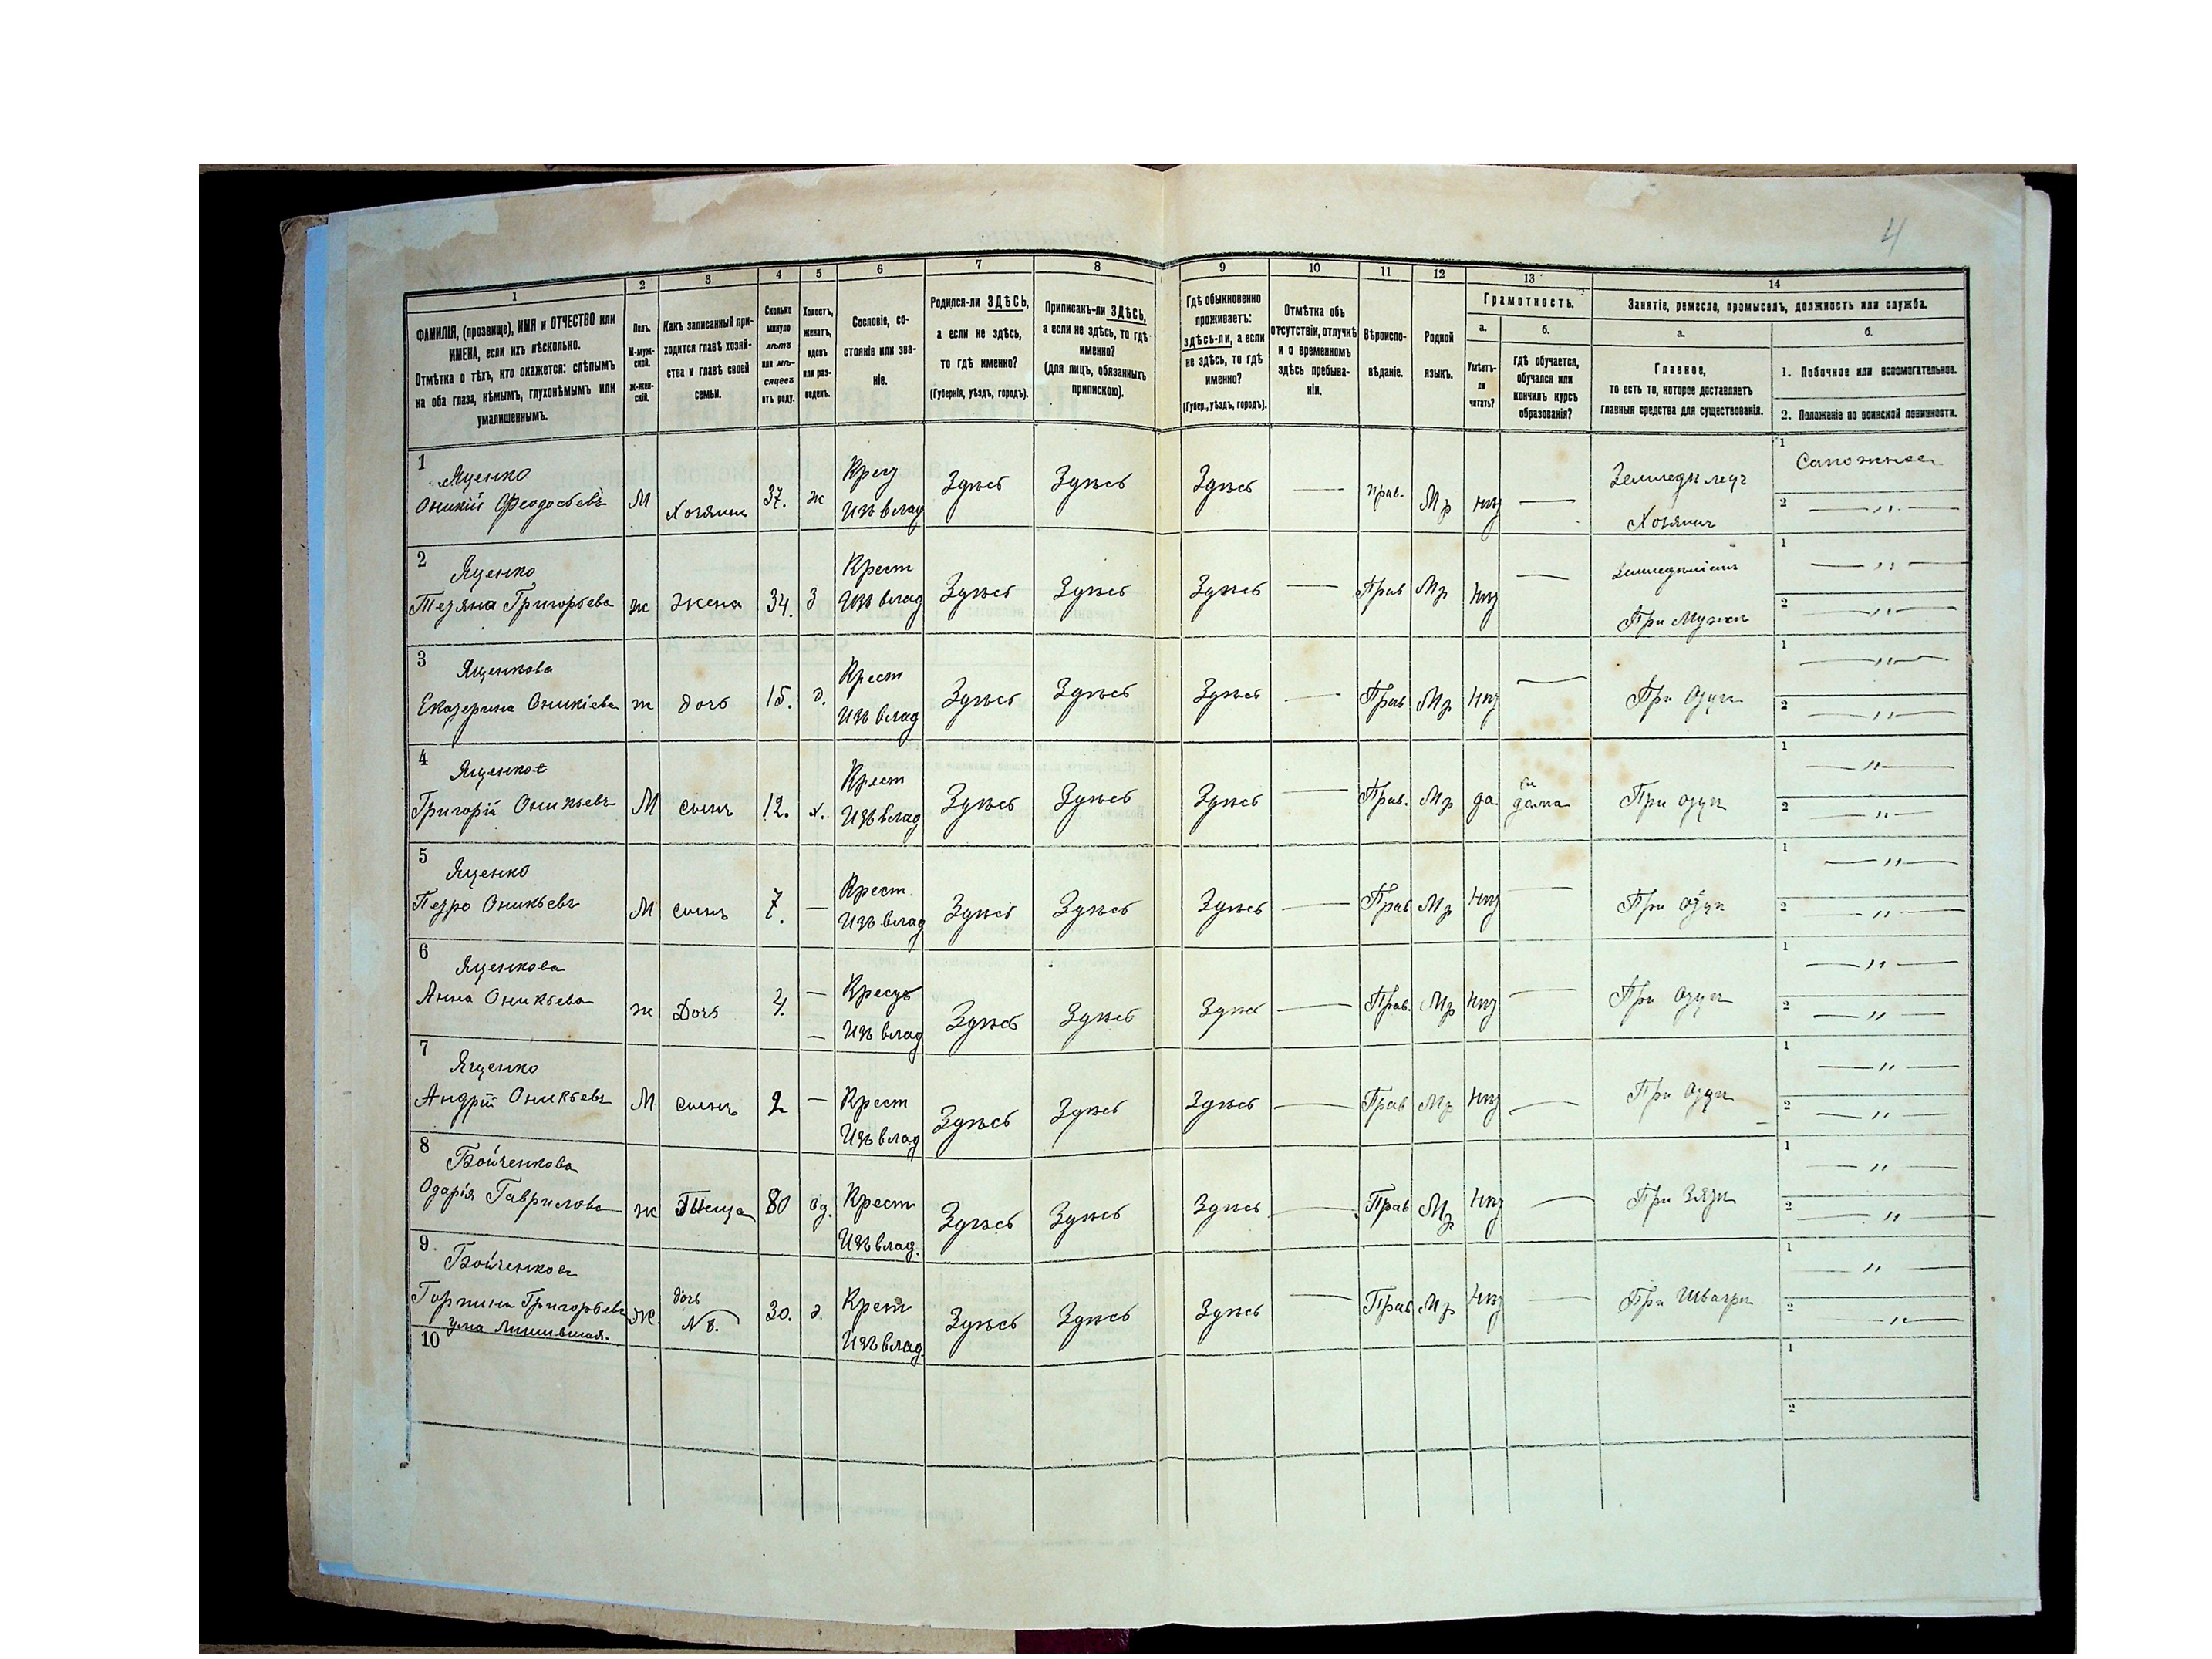 4
1 2 3 4 5 6 7 8 9 10 11 12 13 14
ФАМИЛІЯ, (прозвище), ИМЯ и ОТЧЕСТВО или
ИМЕНА, если ихъ нѣсколько.
Отмѣтка о тѣхъ, кто окажется: слѣпымъ
на оба глаза, нѣмымъ, глухонѣмымъ или
умалишеннымъ.
Полъ.
М-муж-
ской.
ж-жен-
скій.
Какъ записанный при-
ходится главѣ хозяй-
ства и главѣ своей
семьи.
Сколько
минуло
лѣтъ
или мѣ-
сяцевъ
отъ роду.
Холостъ,
женатъ,
вдовъ
или раз-
веденъ.
Сословіе, со-
стояніе или зва-
ніе.
Родился-ли ЗДѢСЬ,
а если не здѣсь,
то гдѣ именно?
(Губернія, уѣздъ, городъ).
Приписанъ-ли ЗДѢСЬ,
а если не здѣсь, то гдѣ
именно?
(для лицъ, обязанныхъ
припискою).
Гдѣ обыкновенно
проживаетъ:
здѣсь-ли, а если
не здѣсь, то гдѣ
именно?
(Губер., уѣздъ, городъ).
Отмѣтка объ
отсутствіи, отлучкѣ
и о временномъ
здѣсь пребыва-
ніи.
Вѣроиспо-
вѣданіе.
Родной
языкъ.
Грамотность.
а.
Умѣетъ-
ли
читать?
б.
гдѣ обучается,
обучался или
кончилъ курсъ
образованія?
Занятіе, ремесло, промыселъ, должность или служба.
а.
Главное,
то есть то, которое доставляетъ
главныя средства для существованія.
б.
1. Побочное или вспомогательное.
2. Положеніе по воинской повинности.
1 Яценко
Оникій Феодосьевъ М Хозяинъ 37. ж Крест Изъ влад Здѣсь Здѣсь Здѣсь — прав. Мр нѣт — Земледѣлецъ Хозяинъ
1
2 — „ —
2 Яценко
Тетяна Григорьева ж жена 34. з Крест Изъ влад Здѣсь Здѣсь Здѣсь — Прав Мр нѣт — При Мужѣ
1 — „ —
2 — „ —
3 Яценкова
Екатерина Оникіева ж дочь 15. д. Крест Изъ влад Здѣсь Здѣсь Здѣсь — Прав Мр нѣт — При Отцѣ
1 — „ —
2 — „ —
4 Яценко
Григорій Оникьевъ М сынъ 12. х. Крест Изъ влад Здѣсь Здѣсь Здѣсь — Прав. Мр да дома При отцѣ
1 — „ —
2 — „ —
5 Яценко
Петро Оникьевъ М сынъ 7. — Крест Изъ влад Здѣсь Здѣсь Здѣсь — Прав Мр нѣт — При отцѣ
1 — „ —
2 — „ —
6 Яценкова
Анна Оникьева ж Дочь 4. — — Крестъ Изъ влад Здѣсь Здѣсь Здѣсь — Прав. Мр нѣт — При Отцѣ
1 — „ —
2 — „ —
7 Яценко
Андрій Оникьевъ М сынъ 2 — Крест Изъ влад Здѣсь Здѣсь Здѣсь — Прав Мр нѣт — При Отцѣ
1 — „ —
2 — „ —
8 Бойченкова
Одарія Гаврилова ж Теща 80 вд. Крест Изъ влад. Здѣсь Здѣсь Здѣсь — Прав Мр нѣт — При Зятѣ
1 — „ —
2 — „ —
9. Бойченкова
Горпина Григорьева ж. дочь № 8. 30. д Крест Изъ влад. Здѣсь Здѣсь Здѣсь — Прав Мр нѣт — При Швагрѣ
ума лишившая.
1 — „ —
2 — „ —
10
1
2